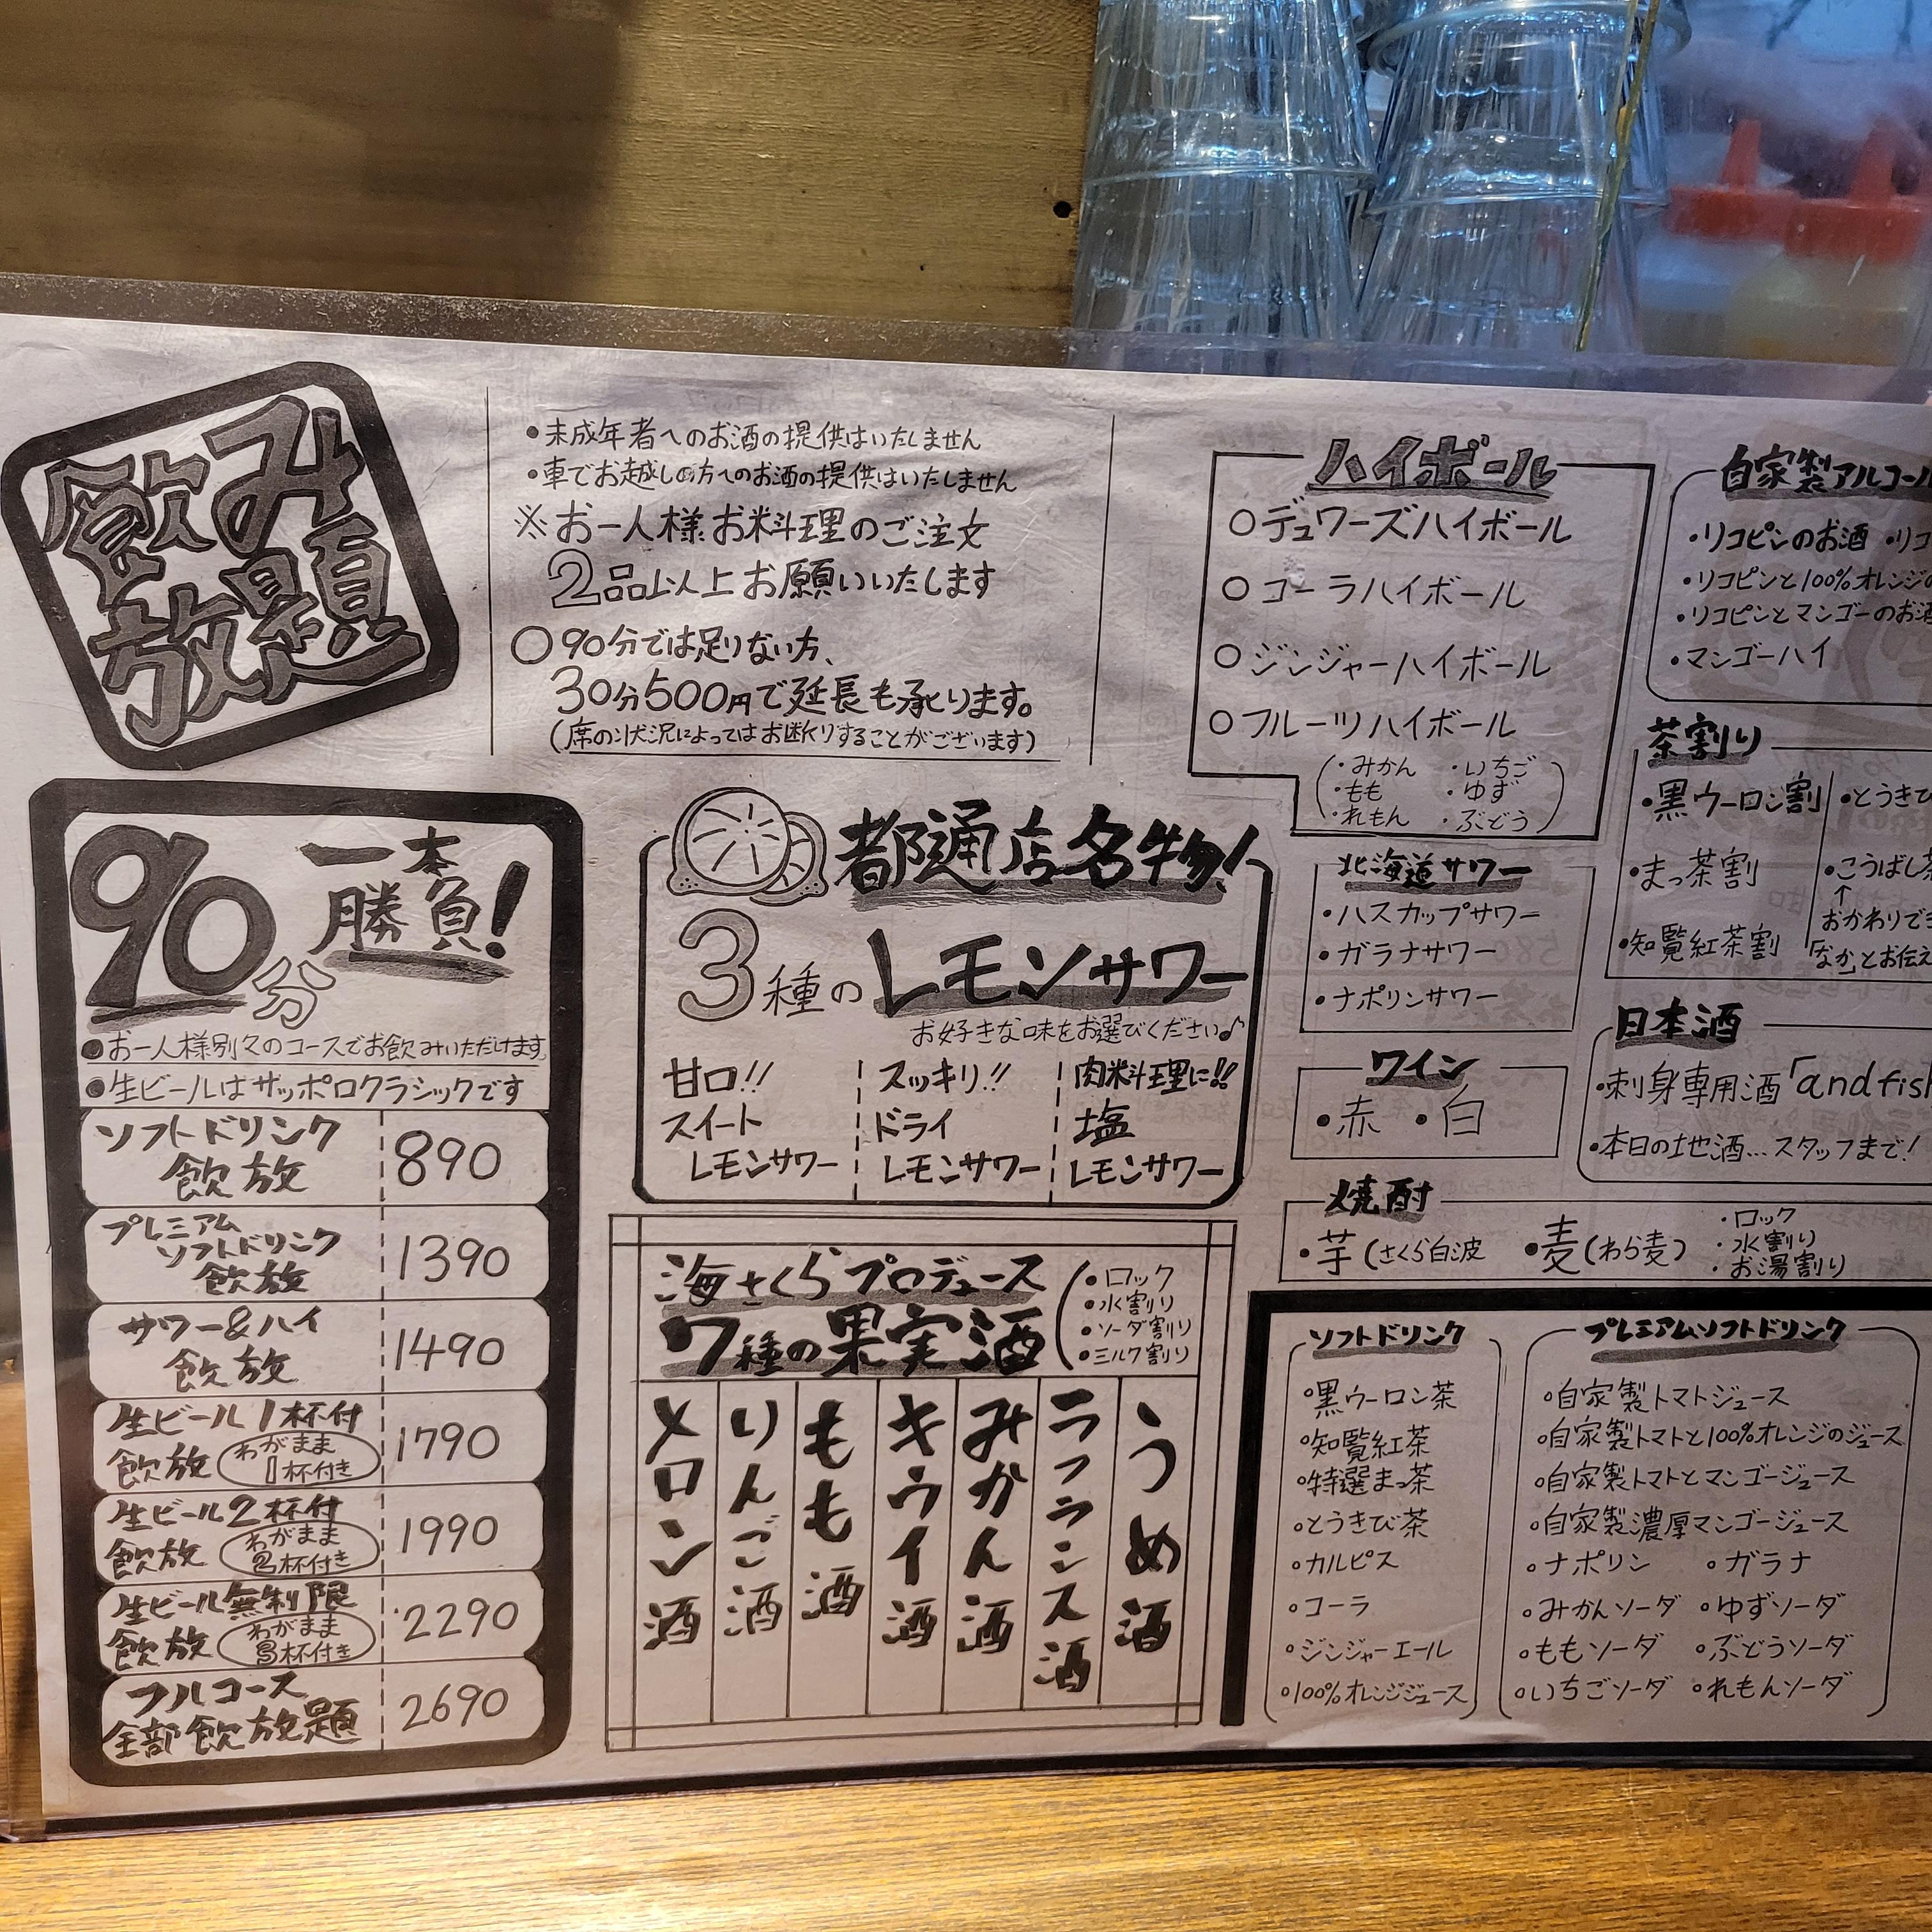 飲み
放題
•未成年者へのお酒の提供はいたしません
•車でお越しの方へのお酒の提供はいたしません
※お一人様お料理のご注文
2品以上お願いいたします
○90分では足りない方、
30分500円で延長も承ります。
(席の状況によってはお断りすることがございます)
90分
一本
勝負!
●お一人様別々のコースでお飲みいただけます
●生ビールはサッポロクラシックです
ソフトドリンク
飲放 890
プレミアム
ソフトドリンク
飲放 1390
サワー&ハイ
飲放 1490
生ビール1杯付
飲放 わがまま1杯付き 1790
生ビール2杯付
飲放 わがまま2杯付き 1990
生ビール無制限
飲放 わがまま3杯付き 2290
フルコース
全部飲放題 2690
都通店名物!
3種のレモンサワー
お好きな味をお選びください♪
甘口!!
スイート
レモンサワー
スッキリ!!
ドライ
レモンサワー
肉料理に!!
塩
レモンサワー
海さくらプロデュース
7種の果実酒
•ロック
•水割り
•ソーダ割り
•ミルク割り
メロン酒
りんご酒
もも酒
キウイ酒
みかん酒
ラフランス酒
うめ酒
ハイボール
○デュワーズハイボール
○コーラハイボール
○ジンジャーハイボール
○フルーツハイボール
(・みかん ・いちご
・もも ・ゆず
・れもん ・ぶどう)
北海道サワー
•ハスカップサワー
•ガラナサワー
•ナポリンサワー
ワイン
•赤 •白
焼酎
•芋(さくら白波 •麦(わら麦)
・ロック
・水割り
・お湯割り
自家製アルコール
•リコピンのお酒 •リコ
•リコピンと100%オレンジの
•リコピンとマンゴーのお酒
•マンゴーハイ
茶割り
•黒ウーロン割
•まっ茶割
•知覧紅茶割
•とうきび
•こうばし茶
↑
おかわりでき
「なか」とお伝え
日本酒
•刺身専用酒「and fish
•本日の地酒…スタッフまで!
ソフトドリンク
○黒ウーロン茶
○知覧紅茶
○特選まっ茶
○とうきび茶
○カルピス
○コーラ
○ジンジャーエール
○100%オレンジジュース
プレミアムソフトドリンク
○自家製トマトジュース
○自家製トマトと100%オレンジのジュース
○自家製トマトとマンゴージュース
○自家製濃厚マンゴージュース
○ナポリン ○ガラナ
○みかんソーダ ○ゆずソーダ
○ももソーダ ○ぶどうソーダ
○いちごソーダ ○れもんソーダ